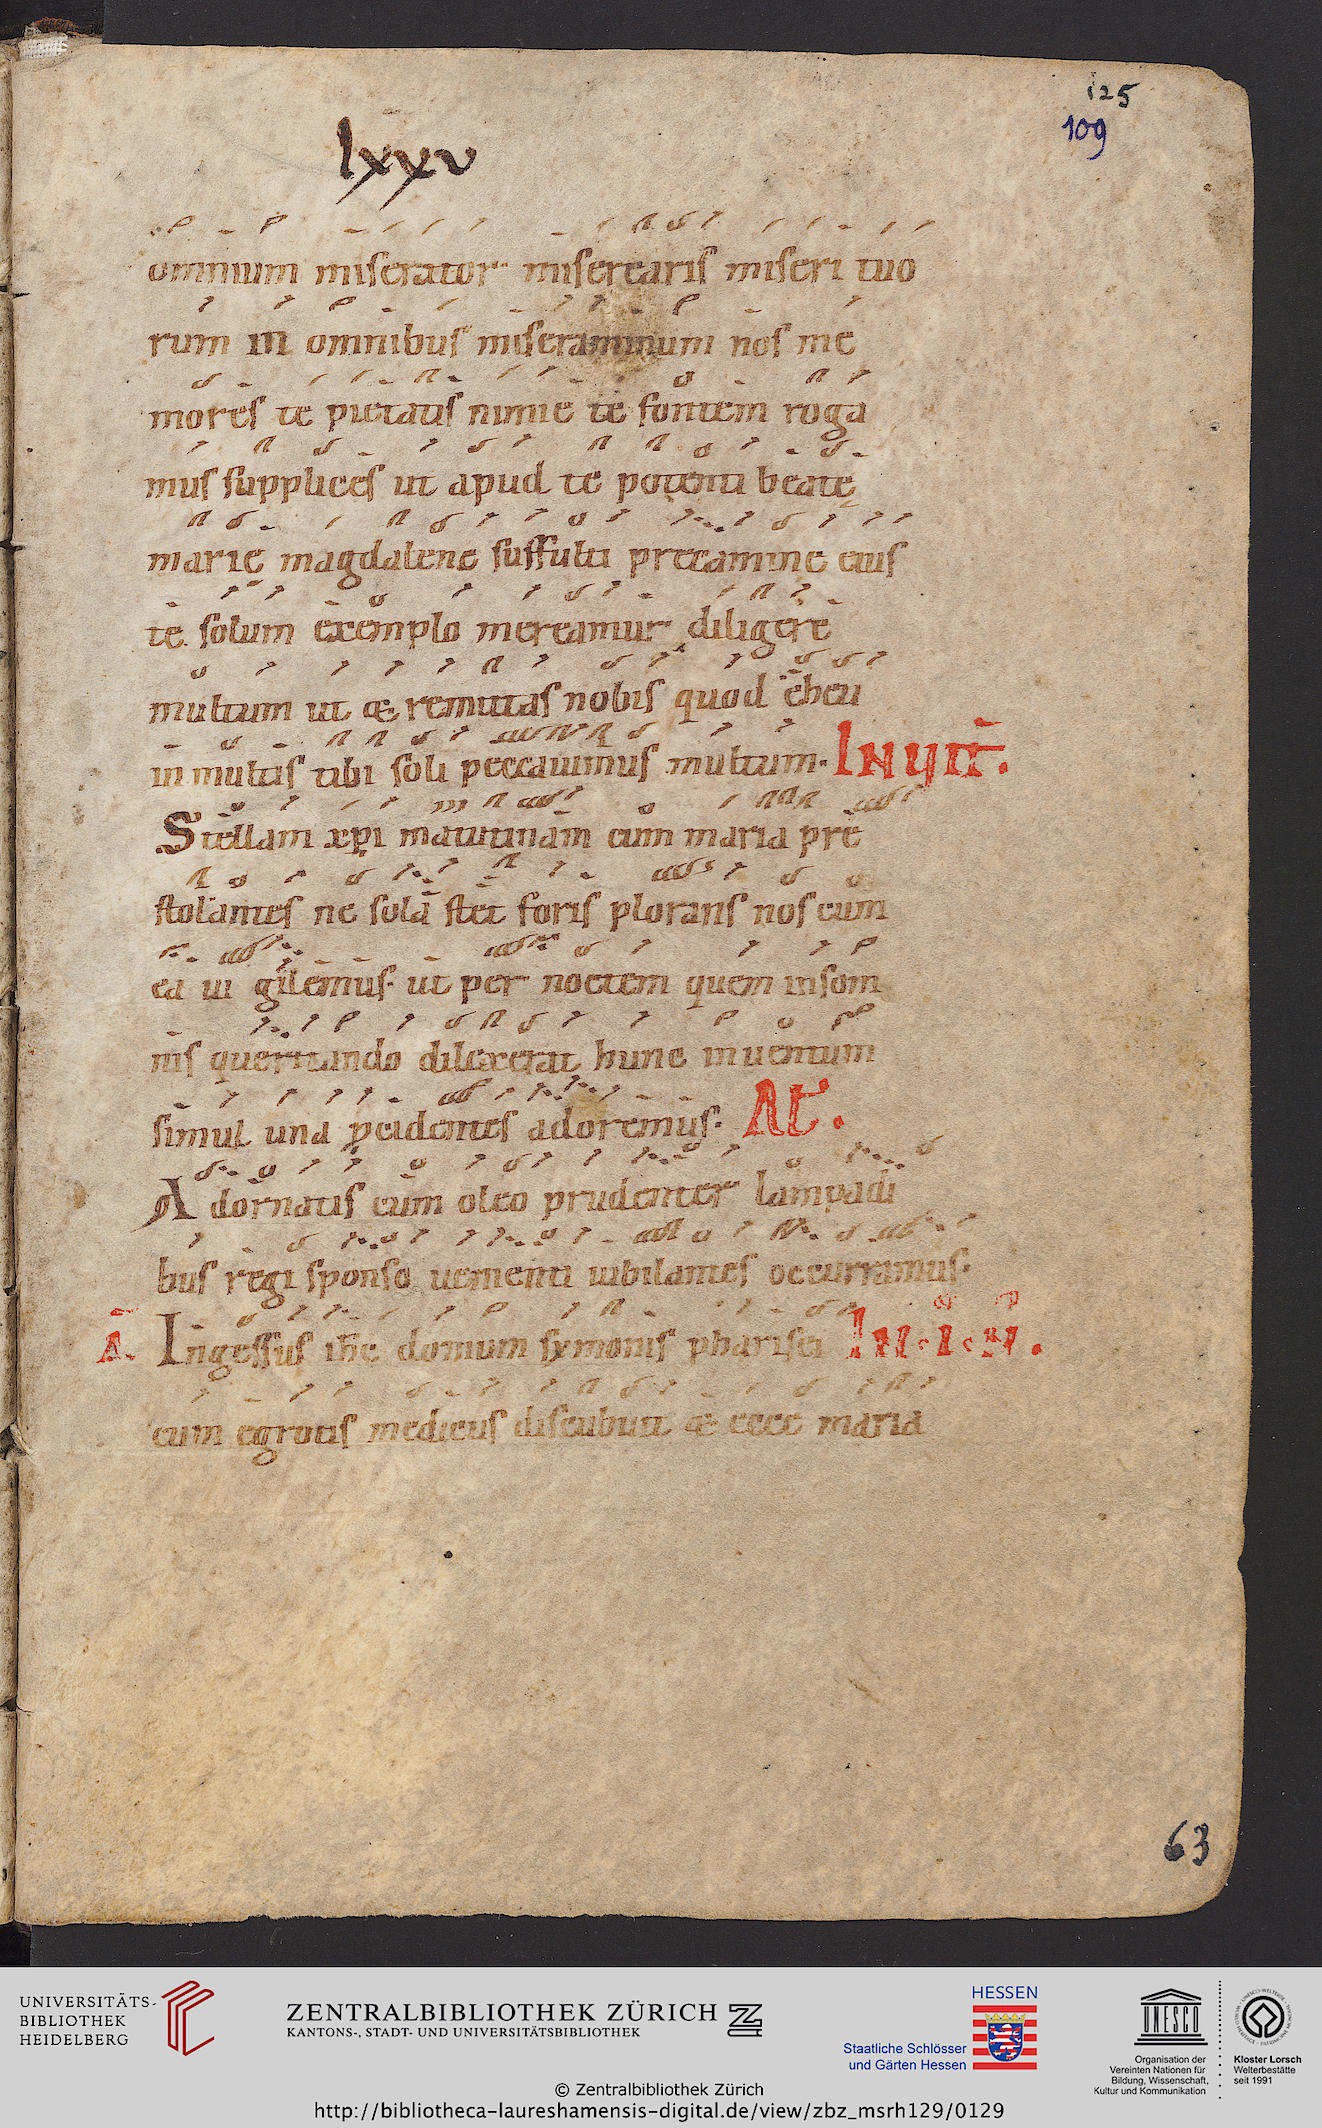 125
109
lxxv
omnium miserator miserearis miseri tuo
rum in omnibus miseraminum nos me
mores te pietatis nunc te fontem roga
mus supplices ut apud te potenti beate
marie magdalene suffulti precamine eius
te solum exemplo mereamur diligere
multum ut & remittas nobis quod eheu
in multis tibi soli peccauimus multum. INVIT.
Stellam xpi matutinam cum maria pre
stolantes ne sola stet foris plorans nos cum
ea ui gilemus. ut per noctem quem insom
nis queritando dilexerat hunc inuentum
simul una petentes adoremus. At.
Adornatis cum oleo prudenter lampadi
bus regi sponso uenienti iubilantes occurramus.
A. Ingessus ihc domum symonis pharisei IN. I. N.
cum egrotis medicus discubuit & ecce maria
63
UNIVERSITÄTS-
BIBLIOTHEK
HEIDELBERG
ZENTRALBIBLIOTHEK ZÜRICH
KANTONS-, STADT- UND UNIVERSITÄTSBIBLIOTHEK
HESSEN
Staatliche Schlösser
und Gärten Hessen
UNESCO
Organisation der
Vereinten Nationen für
Bildung, Wissenschaft,
Kultur und Kommunikation
Kloster Lorsch
Welterbestätte
seit 1991
© Zentralbibliothek Zürich
http://bibliotheca-laureshamensis-digital.de/view/zbz_msrh129/0129